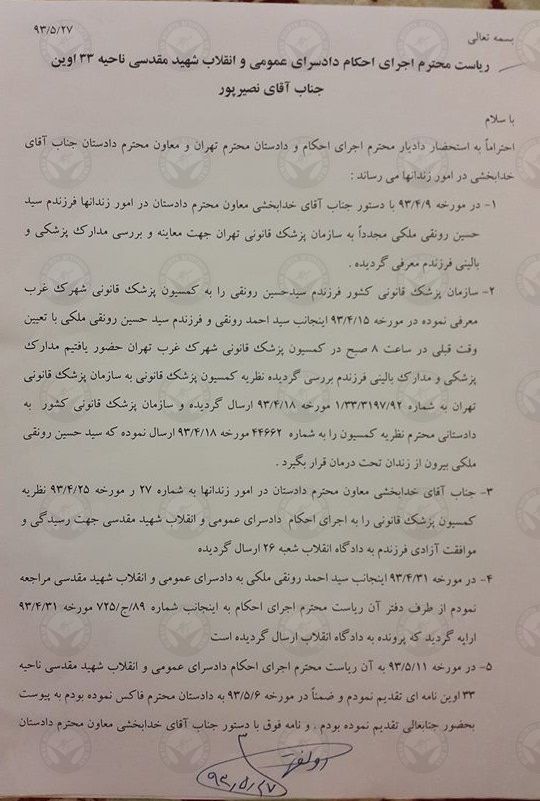 ۹۳/۵/۲۷
بسمه تعالی
ریاست محترم اجرای احکام دادسرای عمومی و انقلاب شهید مقدسی ناحیه ۳۳ اوین
جناب آقای نصیرپور
با سلام
احتراماً به استحضار دادیار محترم اجرای احکام و دادستان محترم تهران و معاون محترم دادستان جناب آقای
خدابخشی در امور زندانها می رساند :
۱- در مورخه ۹۳/۴/۹ با دستور جناب آقای خدابخشی معاون محترم دادستان در امور زندانها فرزندم سید
حسین رونقی ملکی مجدداً به سازمان پزشک قانونی تهران جهت معاینه و بررسی مدارک پزشکی و
بالینی فرزندم معرفی گردیده .
۲- سازمان پزشک قانونی کشور فرزندم سیدحسین رونقی را به کمسیون پزشک قانونی شهرک غرب
معرفی نموده در مورخه ۹۳/۴/۱۵ اینجانب سید احمد رونقی و فرزندم سید حسین رونقی ملکی با تعیین
وقت قبلی در ساعت ۸ صبح در کمسیون پزشک قانونی شهرک غرب تهران حضور یافتیم مدارک
پزشکی و مدارک بالینی فرزندم بررسی گردیده نظریه کمسیون پزشک قانونی به سازمان پزشک قانونی
تهران به شماره ۱/۳۳/۳۱۹۷/۹۲ مورخه ۹۳/۴/۱۸ ارسال گردیده و سازمان پزشک قانونی کشور به
دادستانی محترم نظریه کمسیون را به شماره ۴۴۶۶۲ مورخه ۹۳/۴/۱۸ ارسال نموده که سید حسین رونقی
ملکی بیرون از زندان تحت درمان قرار بگیرد .
۳- جناب آقای خدابخشی معاون محترم دادستان در امور زندانها به شماره ۲۷ ر مورخه ۹۳/۴/۲۵ نظریه
کمسیون پزشک قانونی را به اجرای احکام دادسرای عمومی و انقلاب شهید مقدسی جهت رسیدگی و
موافقت آزادی فرزندم به دادگاه انقلاب شعبه ۲۶ ارسال گردیده
۴- در مورخه ۹۳/۴/۳۱ اینجانب سید احمد رونقی ملکی به دادسرای عمومی و انقلاب شهید مقدسی مراجعه
نمودم از طرف دفتر آن ریاست محترم اجرای احکام به اینجانب شماره ۸۹/ح/۷۲۵ مورخه ۹۳/۴/۳۱
ارایه گردید که پرونده به دادگاه انقلاب ارسال گردیده است
۵- در مورخه ۹۳/۵/۱۱ به آن ریاست محترم اجرای احکام دادسرای عمومی و انقلاب شهید مقدسی ناحیه
۳۳ اوین نامه ای تقدیم نمودم و ضمناً در مورخه ۹۳/۵/۶ به دادستان محترم فاکس نموده بودم به پیوست
بحضور جنابعالی تقدیم نموده بودم . و نامه فوق با دستور جناب آقای خدابخشی معاون محترم دادستان
۹۳/۵/۲۷